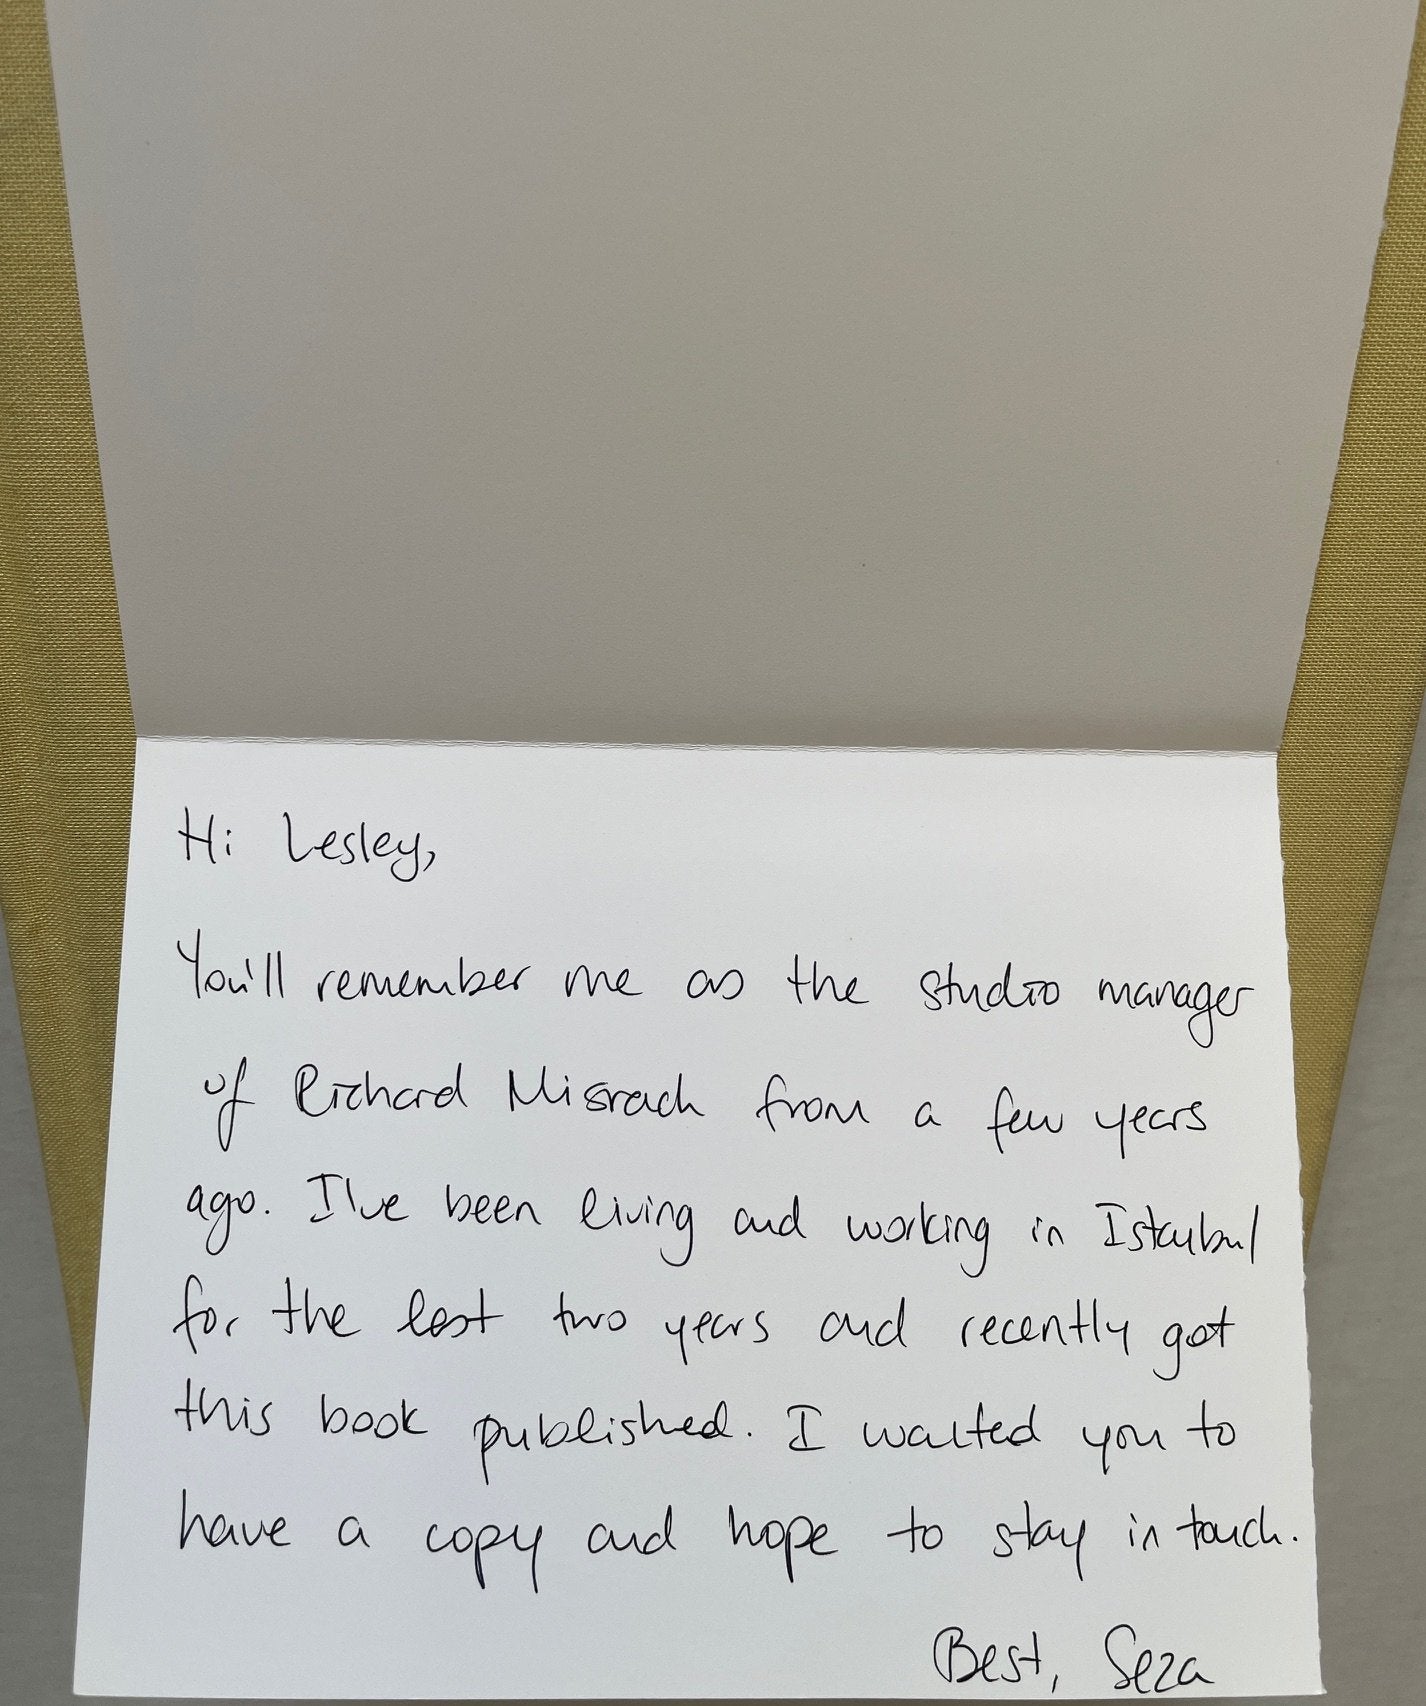 Hi Lesley,
You'll remember me as the studio manager
of Richard Misrach from a few years
ago. I've been living and working in Istanbul
for the last two years and recently got
this book published. I wanted you to
have a copy and hope to stay in touch.
Best, Seza